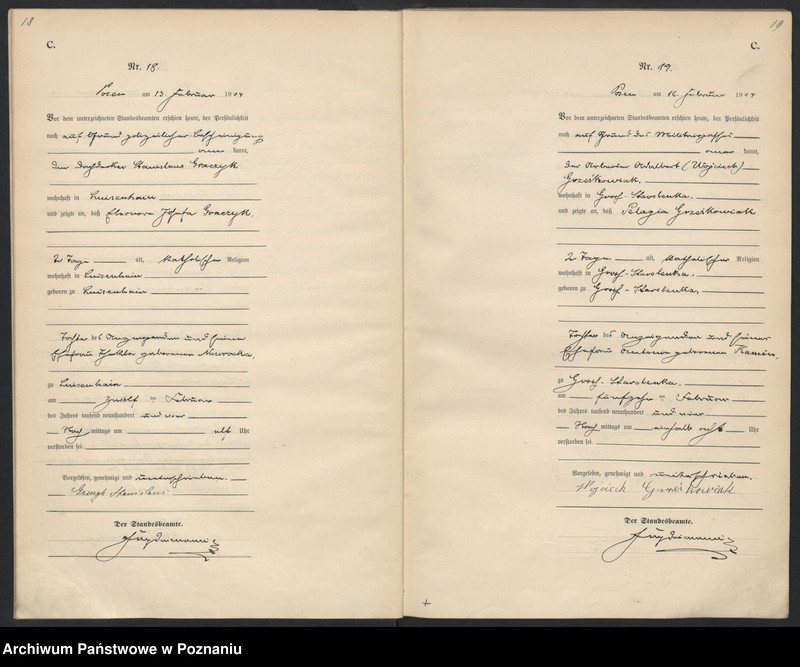 18
C.
Nr. 18.
Posen am 13 Februar 1904
Vor dem unterzeichneten Standesbeamten erschien heute, der Persönlichkeit
nach auf Grund polizeilicher Bescheinigung
kannt,
der Dachdecker Stanislaus Graczyk
wohnhaft in Luisenhain
und zeigte an, daß Eleonora Josefa Graczyk,
2 Tage alt, katholischer Religion
wohnhaft in Luisenhain
geboren zu Luisenhain
Tochter des Anzeigenden und seiner
Ehefrau Thekla geborenen Nawrocka,
zu Luisenhain
am zwölf ten Februar
des Jahres tausend neunhundert und vier
Nach mittags um elf Uhr
verstorben sei.
Vorgelesen, genehmigt und unterschrieben.
Stanislaus
Der Standesbeamte.
19
C.
Nr. 19.
Posen am 16. Februar 1904
Vor dem unterzeichneten Standesbeamten erschien heute, der Persönlichkeit
nach auf Grund des Militärpasses
kannt,
der Arbeiter Adalbert (Wojciech)
Grześkowiak,
wohnhaft in Groß-Starolenka,
und zeigte an, daß Pelagia Grześkowiak
2 Tage alt, katholischer Religion
wohnhaft in Groß-Starolenka,
geboren zu Groß-Starolenka,
Tochter des Anzeigenden und seiner
Ehefrau Antonia geborenen
zu Groß-Starolenka,
am fünfzehn ten Februar
des Jahres tausend neunhundert und vier
Nach mittags um einhalb acht Uhr
verstorben sei.
Vorgelesen, genehmigt und unterschrieben.
Wojciech Grześkowiak
Der Standesbeamte.
Archiwum Państwowe w Poznaniu